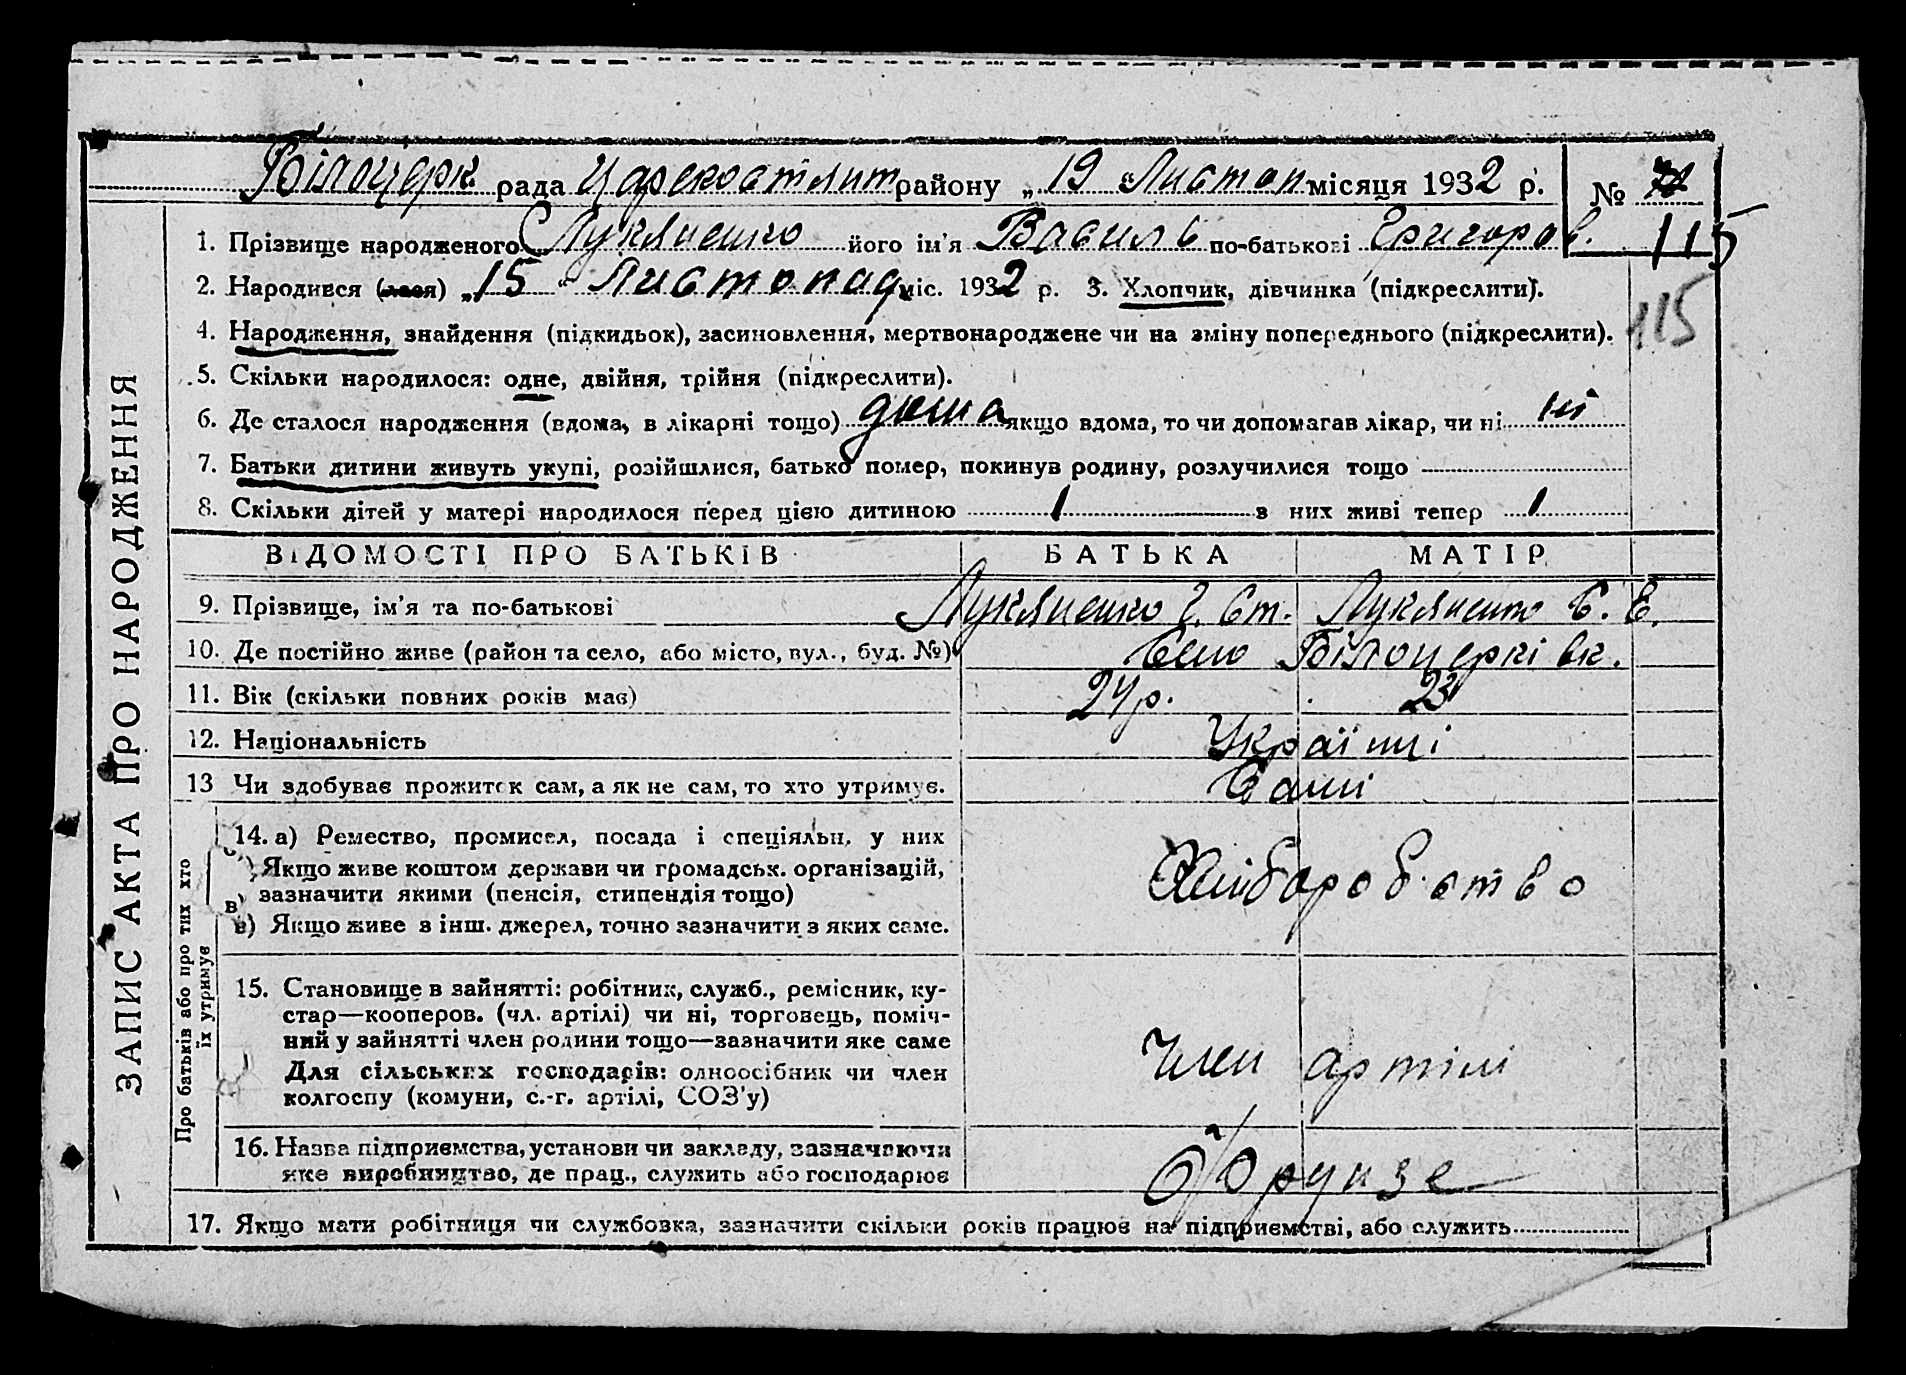 Білоцерк. рада Царекостянт району „ 19 “ Листоп місяця 1932 р. № 
115
1. Прізвище народженого Лукяненко його ім'я Василь по-батькові Григоров.
2. Народився (лася) „ 15 “ Листопад міс. 1932 р. 3. Хлопчик, дівчинка (підкреслити).
115
4. Народження, знайдення (підкидьок), засиновлення, мертвонароджене чи на зміну попереднього (підкреслити).
5. Скільки народилося: одне, двійня, трійня (підкреслити).
6. Де сталося народження (вдома, в лікарні тощо) дома якщо вдома, то чи допомагав лікар, чи ні ні
7. Батьки дитини живуть укупі, розійшлися, батько помер, покинув родину, розлучилися тощо
8. Скільки дітей у матері народилося перед цією дитиною 1 з них живі тепер 1
ЗАПИС АКТА ПРО НАРОДЖЕННЯ
ВІДОМОСТІ ПРО БАТЬКІВ БАТЬКА МАТІР
9. Прізвище, ім'я та по-батькові Лукяненко Г. Ст. Лукяненко Є. Е.
10. Де постійно живе (район та село, або місто, вул., буд. №) Село Білоцерківк.
11. Вік (скільки повних років має) 24 р. 23
12. Національність Українці
13 Чи здобуває прожиток сам, а як не сам, то хто утримує. Самі
Про батьків або про тих хто
їх утримує
14. а) Ремество, промисел, посада і спеціяльн. у них
б) Якщо живе коштом держави чи громадськ. організацій,
зазначити якими (пенсія, стипендія тощо)
в) Якщо живе з інш. джерел, точно зазначити з яких саме.
Хліборобство
15. Становище в зайнятті: робітник, служб., ремісник, ку-
стар—кооперов. (чл. артілі) чи ні, торговець, поміч-
ний у зайнятті член родини тощо—зазначити яке саме
Для сільських господарів: одноосібник чи член
колгоспу (комуни, с.-г. артілі, СОЗ'у)
Член артілі
16. Назва підприємства, установи чи закладу, зазначаючи
яке виробництво, де прац., служить або господарює
17. Якщо мати робітниця чи службовка, зазначити скільки років працює на підприємстві, або служить